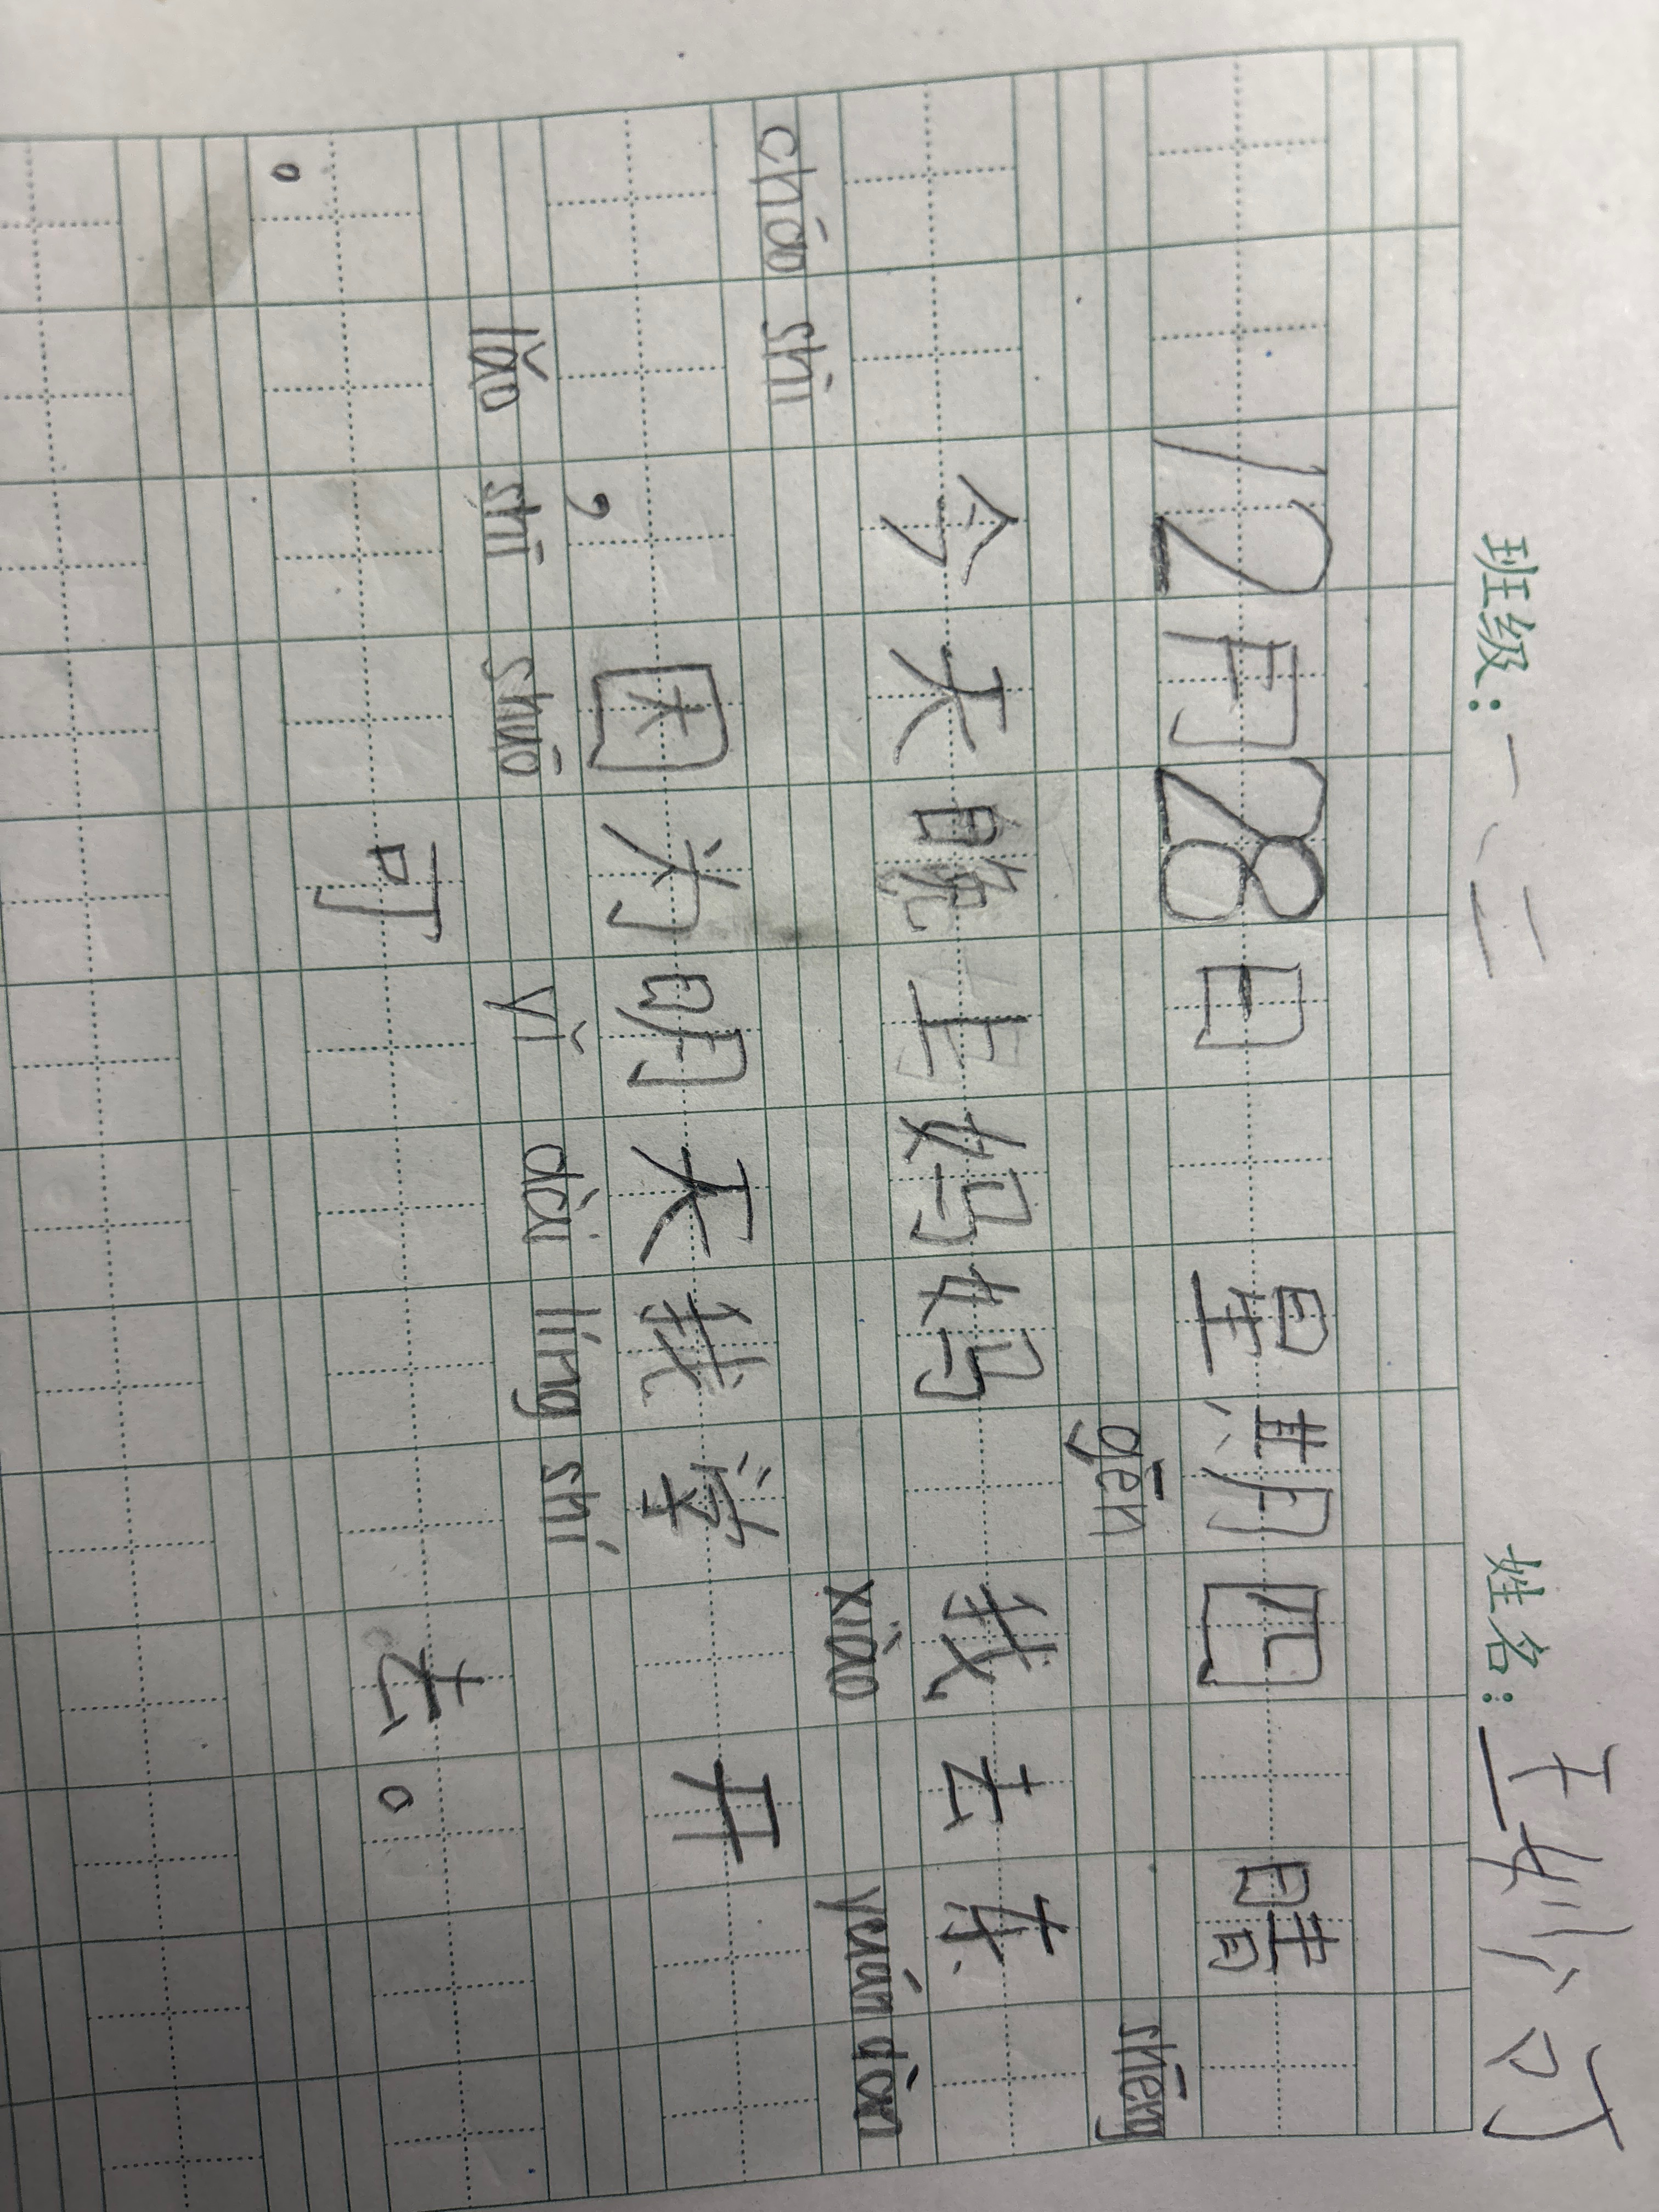 班级：一、二 姓名：王 可
12月28日 星期四 晴
gēn shēng
今天晚上妈妈 我去东
chāo shì xiào yuán dàn
，因为明天我学 开
lǎo shī shuō yǐ dài líng shí
。 可 去。